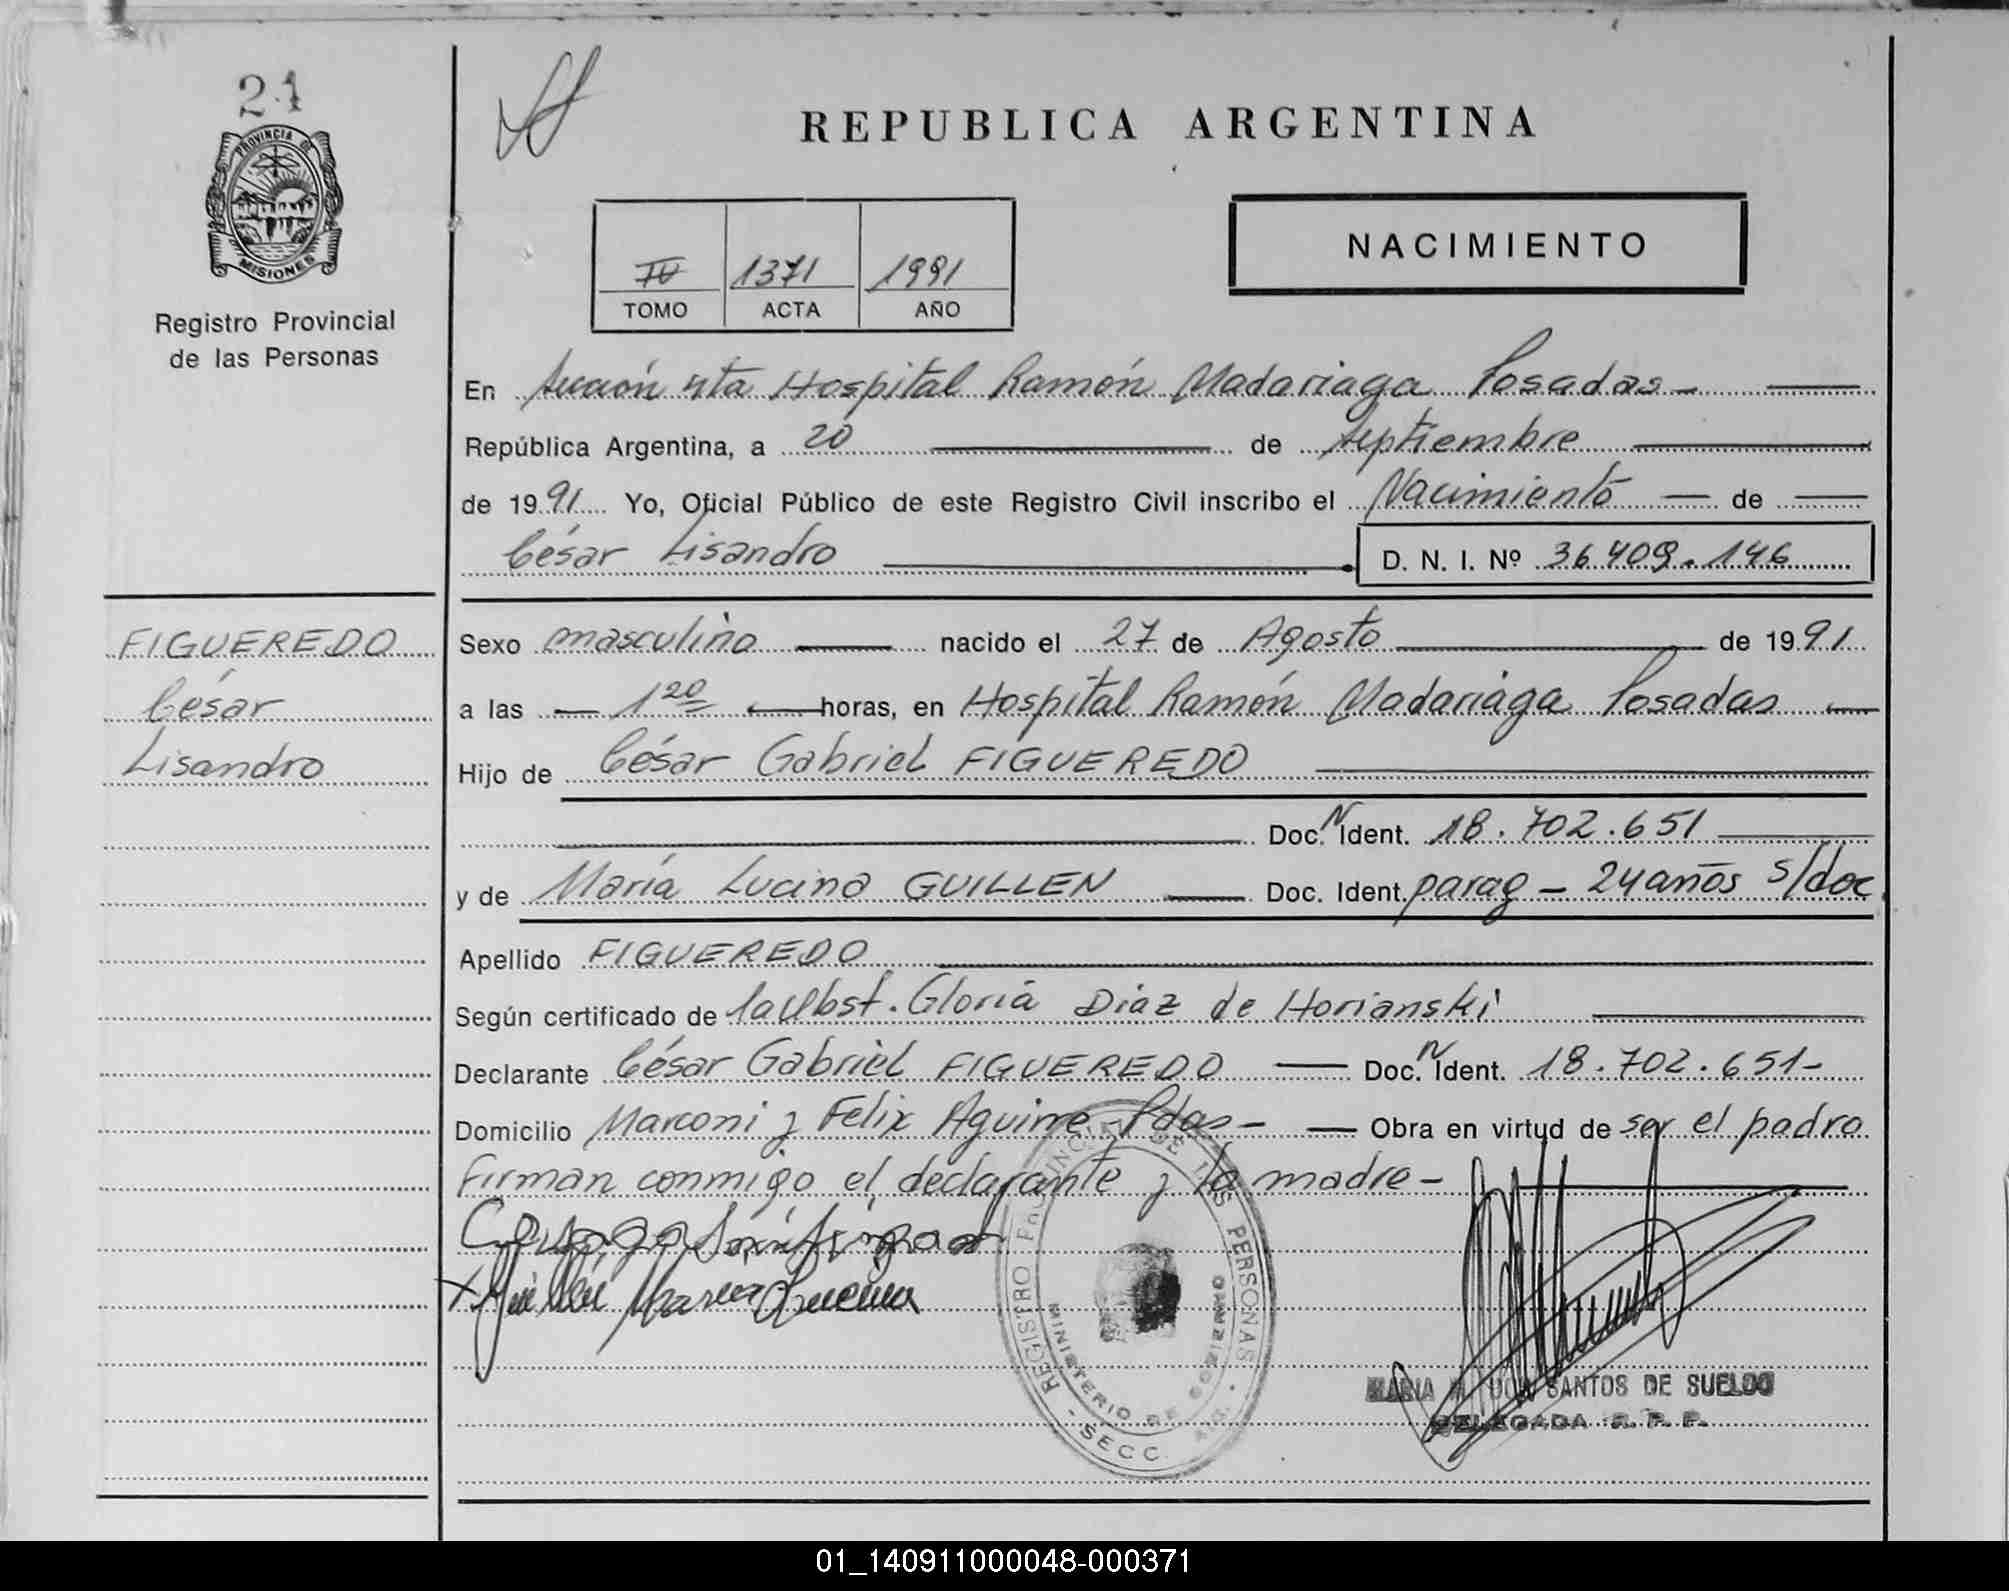 21
PROVINCIA DE
MISIONES
Registro Provincial
de las Personas
REPUBLICA ARGENTINA
NACIMIENTO
IV 1371 1991
TOMO ACTA AÑO
En Sección 4ta Hospital Ramón Madariaga Posadas -
República Argentina, a 20 de septiembre
de 1991 Yo, Oficial Público de este Registro Civil inscribo el Nacimiento de
César Lisandro D. N. I. Nº 36.409.146
FIGUEREDO
César
Lisandro
Sexo masculino nacido el 27 de Agosto de 1991
a las 1 20 horas, en Hospital Ramón Madariaga Posadas
Hijo de César Gabriel FIGUEREDO
Doc. N Ident. 18.702.651
y de María Lucina GUILLEN Doc. Ident. parag - 24 años s/doc
Apellido FIGUEREDO
Según certificado de la Obst. Gloria Diaz de Horianski
Declarante César Gabriel FIGUEREDO Doc. N Ident. 18.702.651-
Domicilio Marconi y Felix Aguirre Pdas - Obra en virtud de ser el padre
Firman conmigo el declarante y la madre -
REGISTRO PROVINCIAL DE LAS PERSONAS
MINISTERIO DE GOBIERNO
SECC.
SANTOS DE SUELDO
DELEGADA R. P. P.
01_140911000048-000371